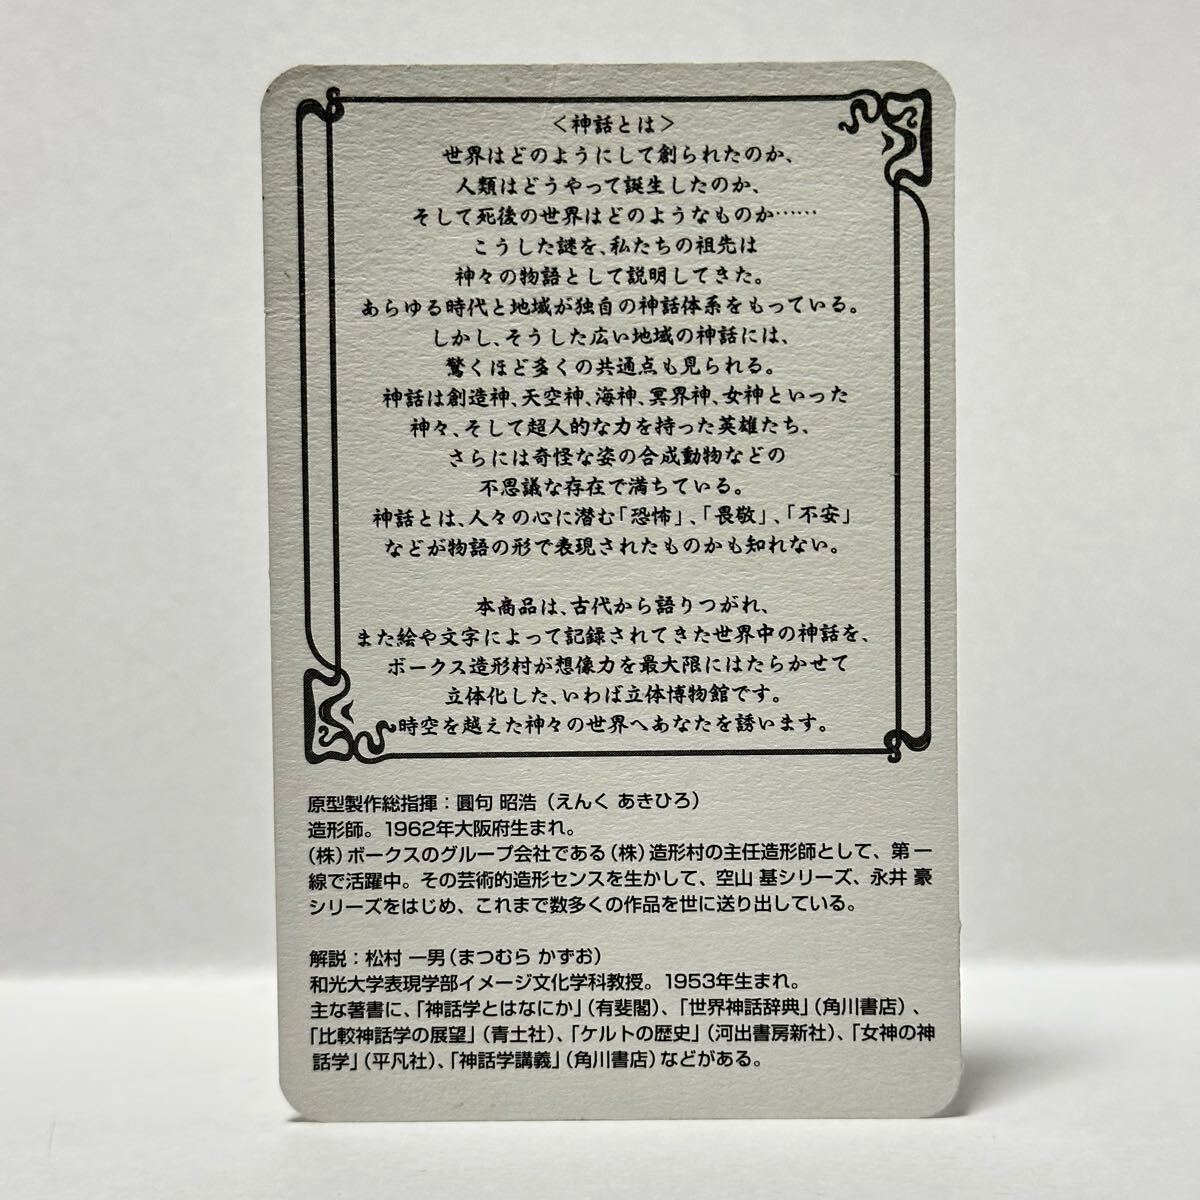 ＜神話とは＞
世界はどのようにして創られたのか、
人類はどうやって誕生したのか、
そして死後の世界はどのようなものか……
こうした謎を、私たちの祖先は
神々の物語として説明してきた。
あらゆる時代と地域が独自の神話体系をもっている。
しかし、そうした広い地域の神話には、
驚くほど多くの共通点も見られる。
神話は創造神、天空神、海神、冥界神、女神といった
神々、そして超人的な力を持った英雄たち、
さらには奇怪な姿の合成動物などの
不思議な存在で満ちている。
神話とは、人々の心に潜む「恐怖」、「畏敬」、「不安」
などが物語の形で表現されたものかも知れない。
本商品は、古代から語りつがれ、
また絵や文字によって記録されてきた世界中の神話を、
ボークス造形村が想像力を最大限にはたらかせて
立体化した、いわば立体博物館です。
時空を越えた神々の世界へあなたを誘います。
原型製作総指揮：圓句 昭浩（えんく あきひろ）
造形師。1962年大阪府生まれ。
（株）ボークスのグループ会社である（株）造形村の主任造形師として、第一
線で活躍中。その芸術的造形センスを生かして、空山 基シリーズ、永井 豪
シリーズをはじめ、これまで数多くの作品を世に送り出している。
解説：松村 一男（まつむら かずお）
和光大学表現学部イメージ文化学科教授。1953年生まれ。
主な著書に、「神話学とはなにか」（有斐閣）、「世界神話辞典」（角川書店）、
「比較神話学の展望」（青土社）、「ケルトの歴史」（河出書房新社）、「女神の神
話学」（平凡社）、「神話学講義」（角川書店）などがある。